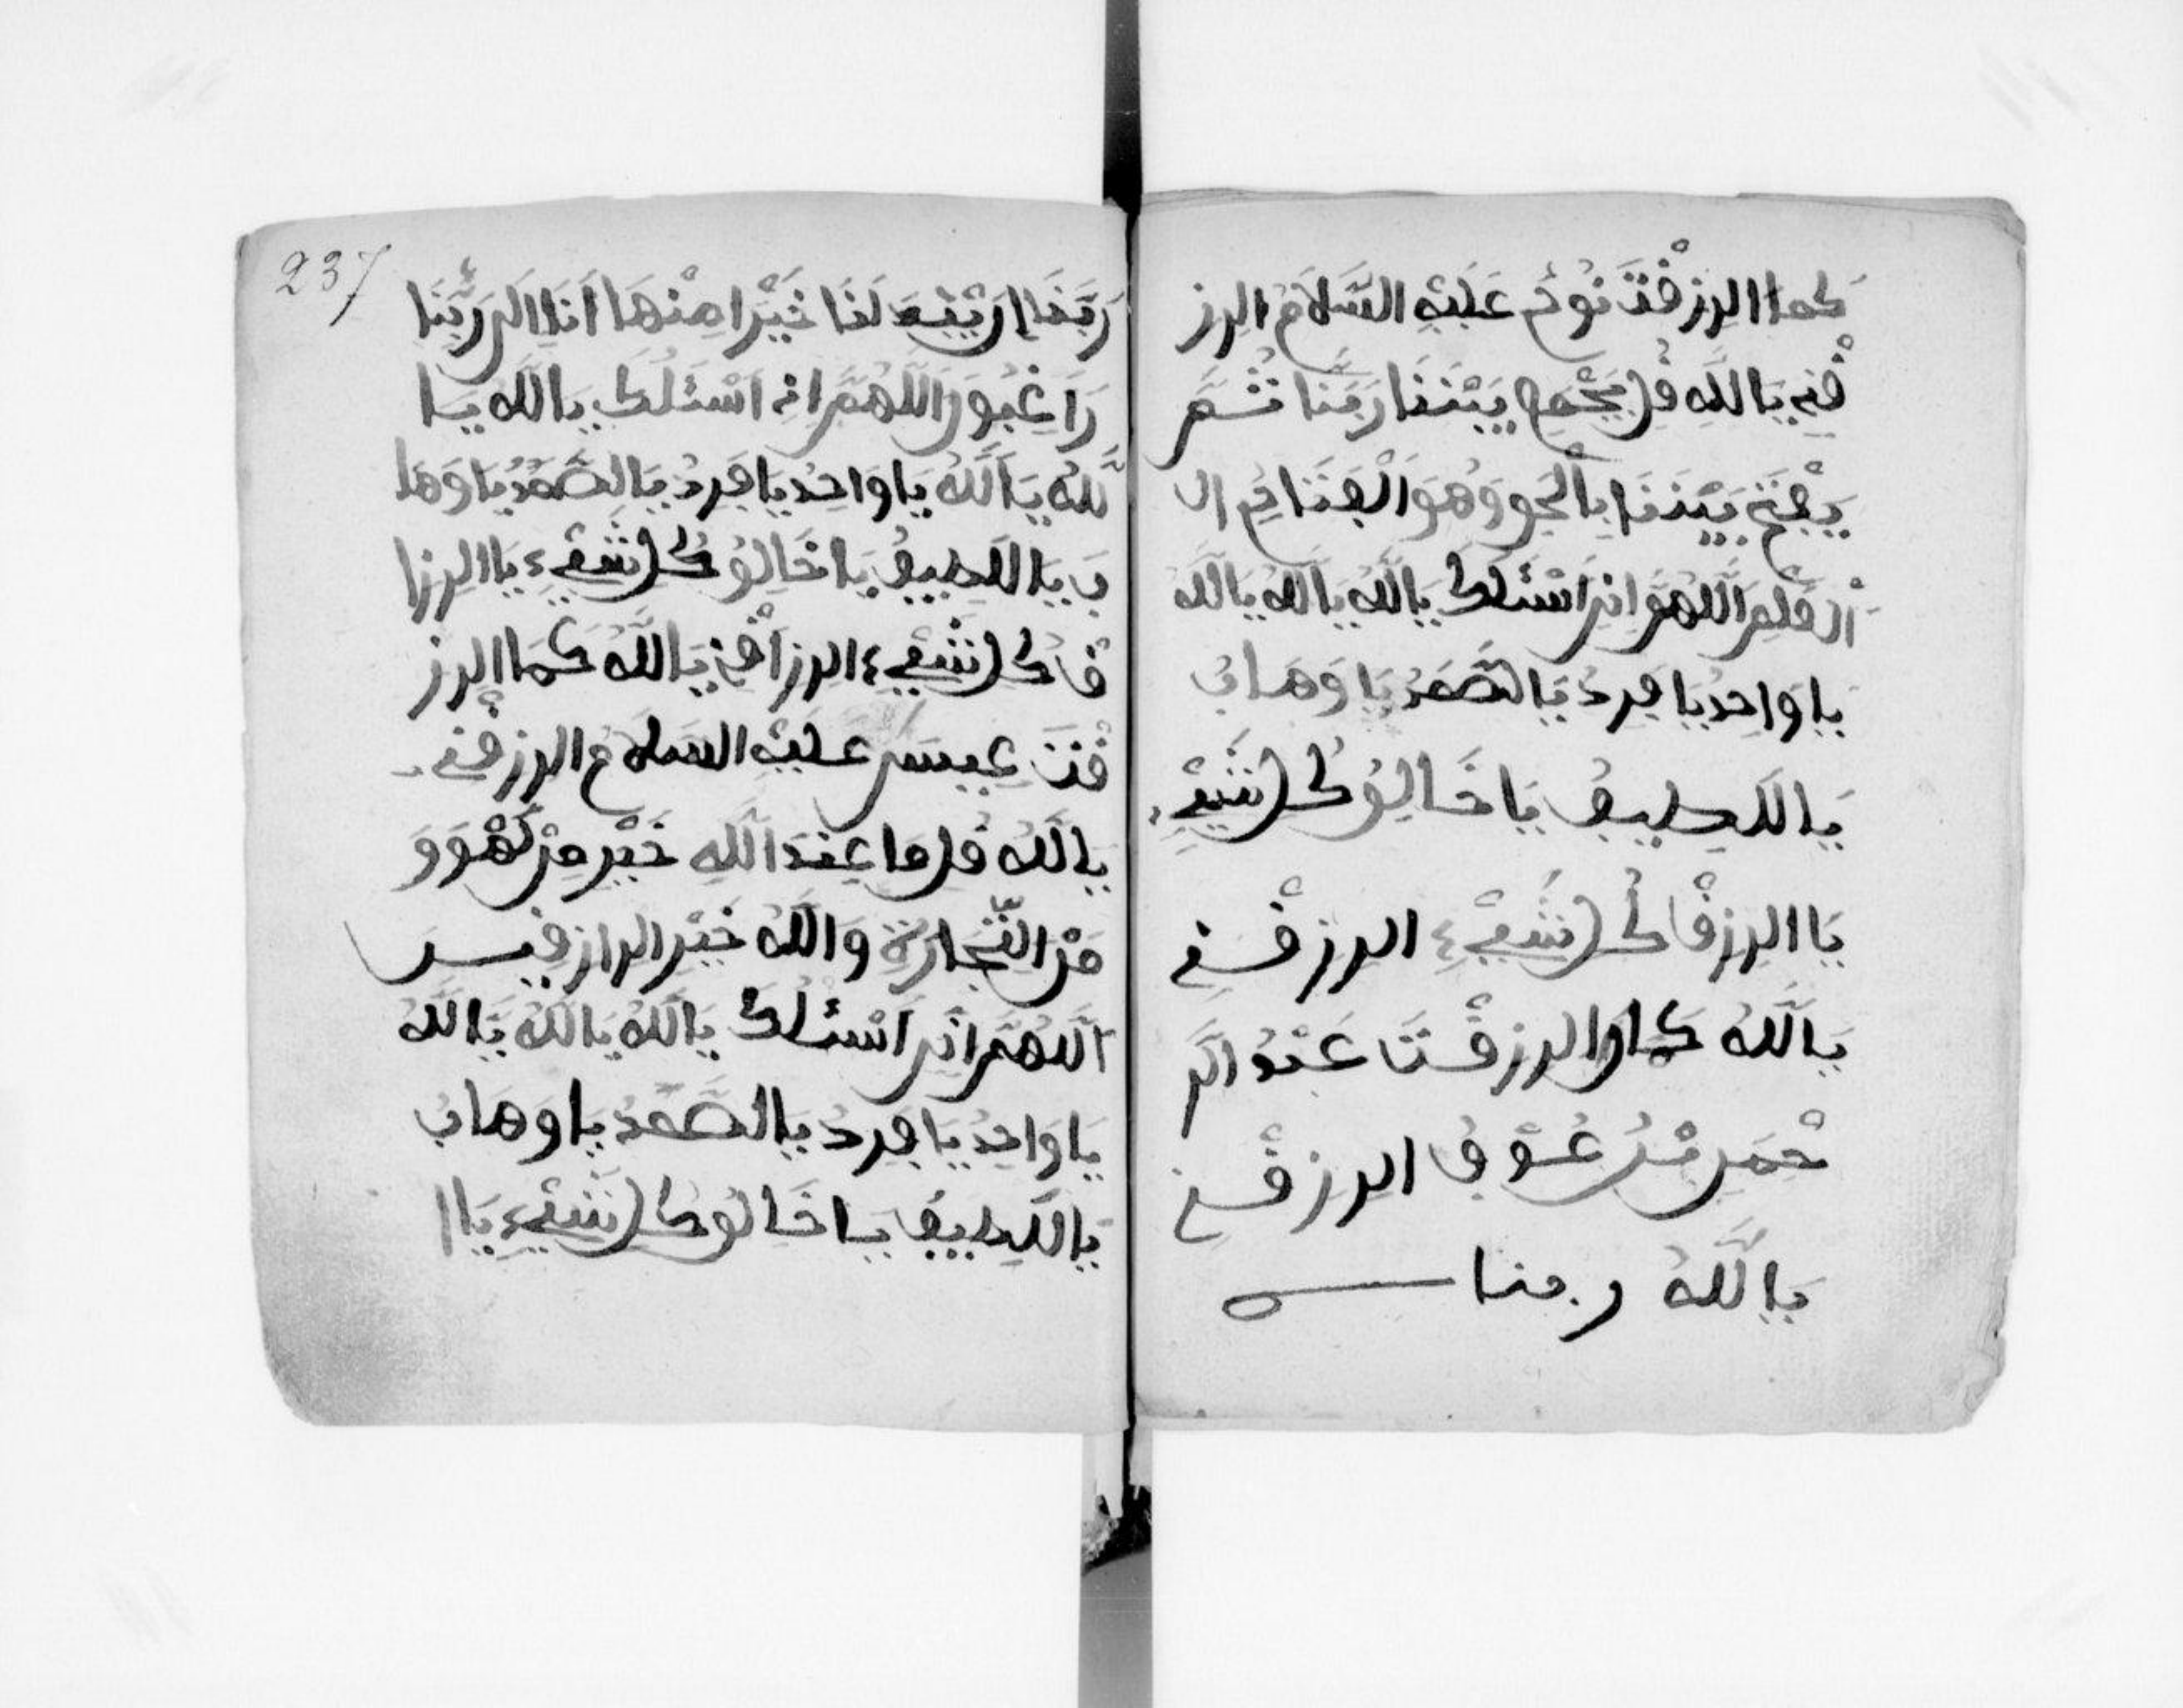 كما الرزقت نوح عليه السلام الرز
قني يا الله قل يجمع بيننا ربنا ثم
يفتح بيننا بالحق وهو الفتاح ال
العليم اللهم اني اسئلك يا الله يا الله يا الله
يا واحد يا فرد يا الصمد يا وهاب
يا اللطيف يا خالق كل شيء
يا الرزقا كل شيء الرزقني
يا الله كما الرزقت عبد الر
حمن بن عوف الرزقني
يا الله ربنا
237
ربنا ان يبد لنا خيرا منها انا الى ربنا
راغبون اللهم اني اسئلك يا الله يا
لله يا الله يا واحد يا فرد يا الصمد يا وها
ب يا اللطيف يا خالق كل شيء يا الرزا
قا كل شيء الرزاقني يا الله كما الرز
قت عيسى عليه السلام الرزقني
يا الله قل ما عند الله خير من لهو و
من التجارة والله خير الرازقين
اللهم اني اسئلك يا الله يا الله يا الله
يا واحد يا فرد يا الصمد يا وهاب
يا اللطيف يا خالق كل شيء يا ا